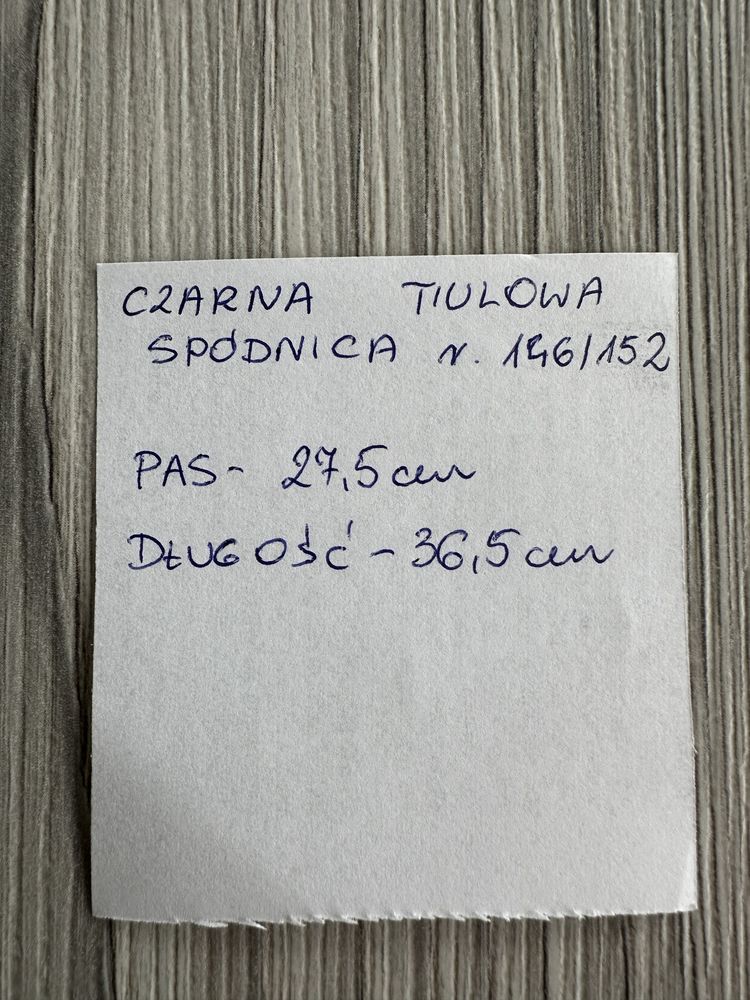 CZARNA TIULOWA
SPÓDNICA r. 146/152
PAS- 27,5 cm
DŁUGOŚĆ - 36,5 cm